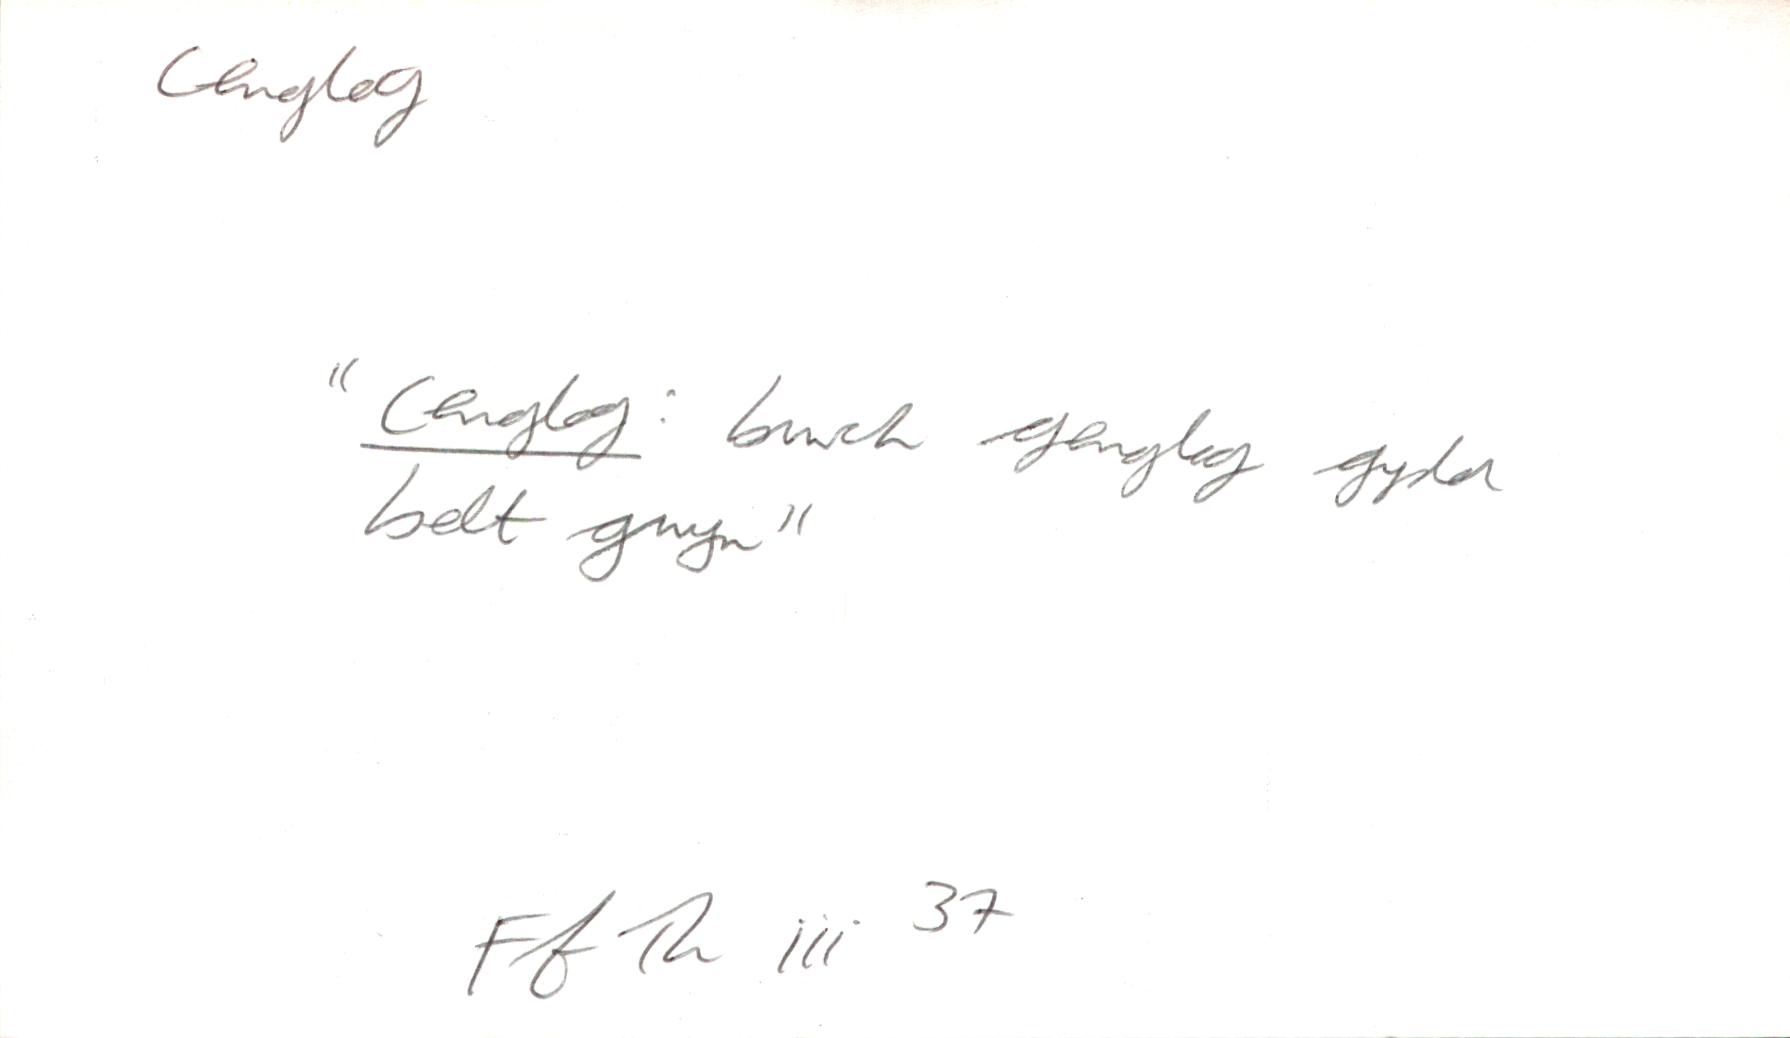 Cenglog
"Cenglog: buwch genglog gyda
belt gwyn"
Ff Th iii 37